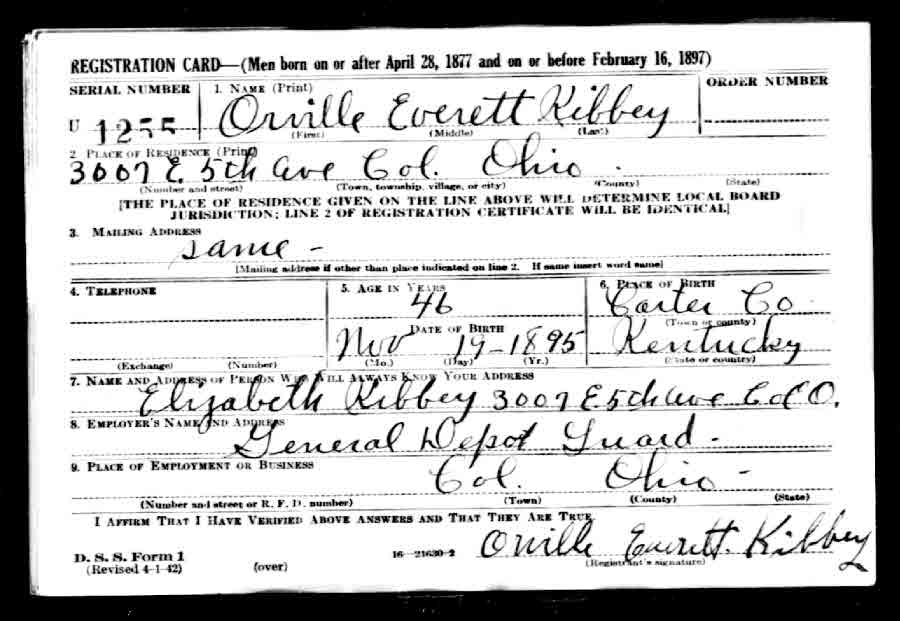 REGISTRATION CARD—(Men born on or after April 28, 1877 and on or before February 16, 1897)
SERIAL NUMBER 1. NAME (Print) ORDER NUMBER
U 1255 Orville Everett Kibbey
(First) (Middle) (Last)
2. PLACE OF RESIDENCE (Print)
3007 E. 5th Ave Col. Ohio.
(Number and street) (Town, township, village, or city) (County) (State)
[THE PLACE OF RESIDENCE GIVEN ON THE LINE ABOVE WILL DETERMINE LOCAL BOARD
JURISDICTION; LINE 2 OF REGISTRATION CERTIFICATE WILL BE IDENTICAL]
3. MAILING ADDRESS
same -
[Mailing address if other than place indicated on line 2. If same insert word same]
4. TELEPHONE 5. AGE IN YEARS 6. PLACE OF BIRTH
46 Carter Co
DATE OF BIRTH (Town or county)
Nov 19-1895 Kentucky
(Exchange) (Number) (Mo.) (Day) (Yr.) (State or country)
7. NAME AND ADDRESS OF PERSON WHO WILL ALWAYS KNOW YOUR ADDRESS
Elizabeth Kibbey 3007 E 5th Ave Col O.
8. EMPLOYER'S NAME AND ADDRESS
General Depot Guard -
9. PLACE OF EMPLOYMENT OR BUSINESS
Col. Ohio -
(Number and street or R. F. D. number) (Town) (County) (State)
I AFFIRM THAT I HAVE VERIFIED ABOVE ANSWERS AND THAT THEY ARE TRUE.
D. S. S. Form 1 16—21630-2 Orville Everett Kibbey
(Revised 4-1-42) (over) (Registrant's signature)